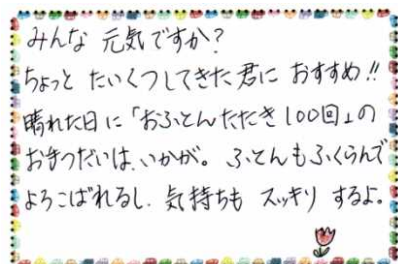 みんな 元気ですか?
ちょっと たいくつしてきた君に おすすめ!!
晴れた日に「おふとんたたき100回」の
おてつだいは、いかが。ふとんもふくらんで
よろこばれるし、気持ちも スッキリ するよ。